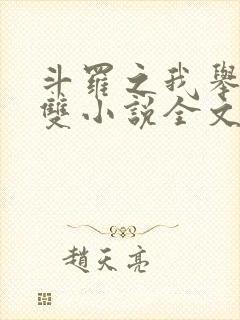 斗羅之我舉
雙小說全文
趙天亮